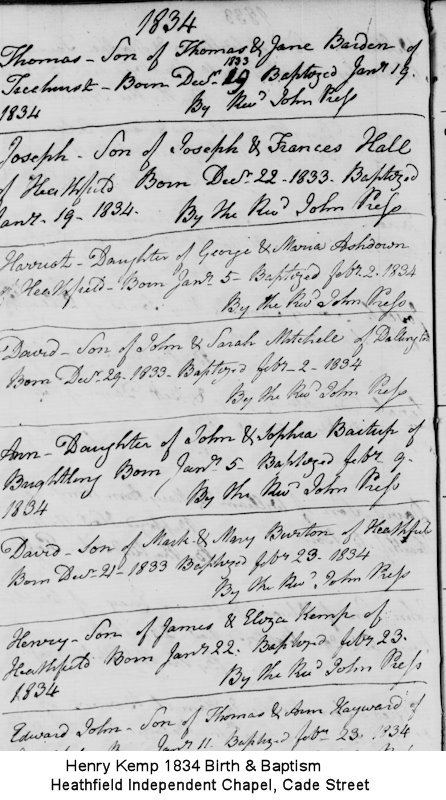 1834
Thomas - Son of Thomas & Jane Barden of
Ticehurst - Born Decr. 19 1833 Baptized Janry 19.
1834 By Revd John Press
Joseph - Son of Joseph & Frances Hall
of Heathfield Born Decr. 22 - 1833. Baptized
Janry. - 19 - 1834. By the Revd John Press
Harriot - Daughter of George & Maria Ashdown
Heathfield - Born Janry 5 - Baptized febry 2. 1834
By the Revd John Press
David - Son of John & Sarah Mitchell of Dallington
Born Decr. 29 - 1833 - Baptized febry - 2 - 1834
By the Revd John Press
Ann - Daughter of John & Sophia of
Born Janry 5 - Baptized febry 9 -
1834 By the Revd John Press
David - Son of Mark & Mary Burton of Heathfield
Born Decr - 21 - 1833 Baptized febry 23 - 1834
By the Revd. John Press
Henry - Son of James & Eliza Kemp of
Heathfield Born Janry 22. Baptized febry 23.
1834 By the Revd John Press
Edward John - Son of Thomas & Ann Hayward of
Janry 11. Baptized febry 23. 1834
Henry Kemp 1834 Birth & Baptism
Heathfield Independent Chapel, Cade Street